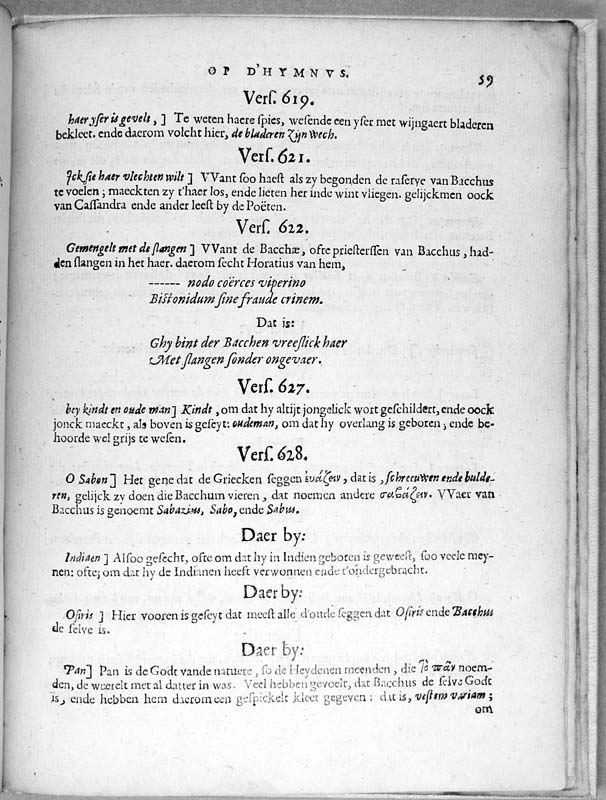 OP D'HYMNVS.
59
Versſ. 619.
haer yſer is gevelt, ] Te weten haere ſpies, weſende een yſer met wijngaert bladeren
bekleet. ende daerom volcht hier, de bladeren zijn wech.
Verſ. 621.
Jck ſie haer vlechten wilt ] VVant ſoo haeſt als zy begonden de raſerye van Bacchus
te voelen ; maeckten zy t'haer los, ende lieten her inde wint vliegen. gelijckmen oock
van Caſſandra ende ander leeſt by de Poëten.
Verſ. 622.
Gemengelt met de ſlangen ] VVant de Bacchæ, ofte prieſterſſen van Bacchus, had-
den ſlangen in het haer. daerom ſecht Horatius van hem,
------ nodo coërces viperino
Biſtonidum ſine fraude crinem.
Dat is:
Ghy bint der Bacchen vreeſlick haer
Met ſlangen ſonder ongevaer.
Verſ. 627.
bey kindt en oude man] Kindt, om dat hy altijt jongelick wort geſchildert, ende oock
jonck maeckt, als boven is geſeyt: oudeman, om dat hy overlang is geboren; ende be-
hoorde wel grijs te weſen.
Verſ. 628.
O Sabon ] Het gene dat de Griecken ſeggen ἐυάζειν, dat is, ſchreeuwen ende bulde-
ren, gelijck zy doen die Bacchum vieren, dat noemen andere σαβάζειν. VVaer van
Bacchus is genoemt Sabazius, Sabo, ende Sabus.
Daer by:
Indiaen ] Alſoo geſecht, ofte om dat hy in Indien geboren is geweeſt, ſoo veele mey-
nen: ofte; om dat hy de Indianen heeft verwonnen ende t'ondergebracht.
Daer by:
Oſiris ] Hier vooren is geſeyt dat meeſt alle d'oude ſeggen dat Oſiris ende Bacchus
de ſelve is.
Daer by:
Pan] Pan is de Godt vande natuere, ſo de Heydenen meenden, die τὸ πᾶν noem-
den, de weerelt met al datter in was. Veel hebben gevoelt, dat Bacchus de ſelve Godt
is, ende hebben hem daerom een geſpickelt kleet gegeven: dit is, veſtem variam;
om